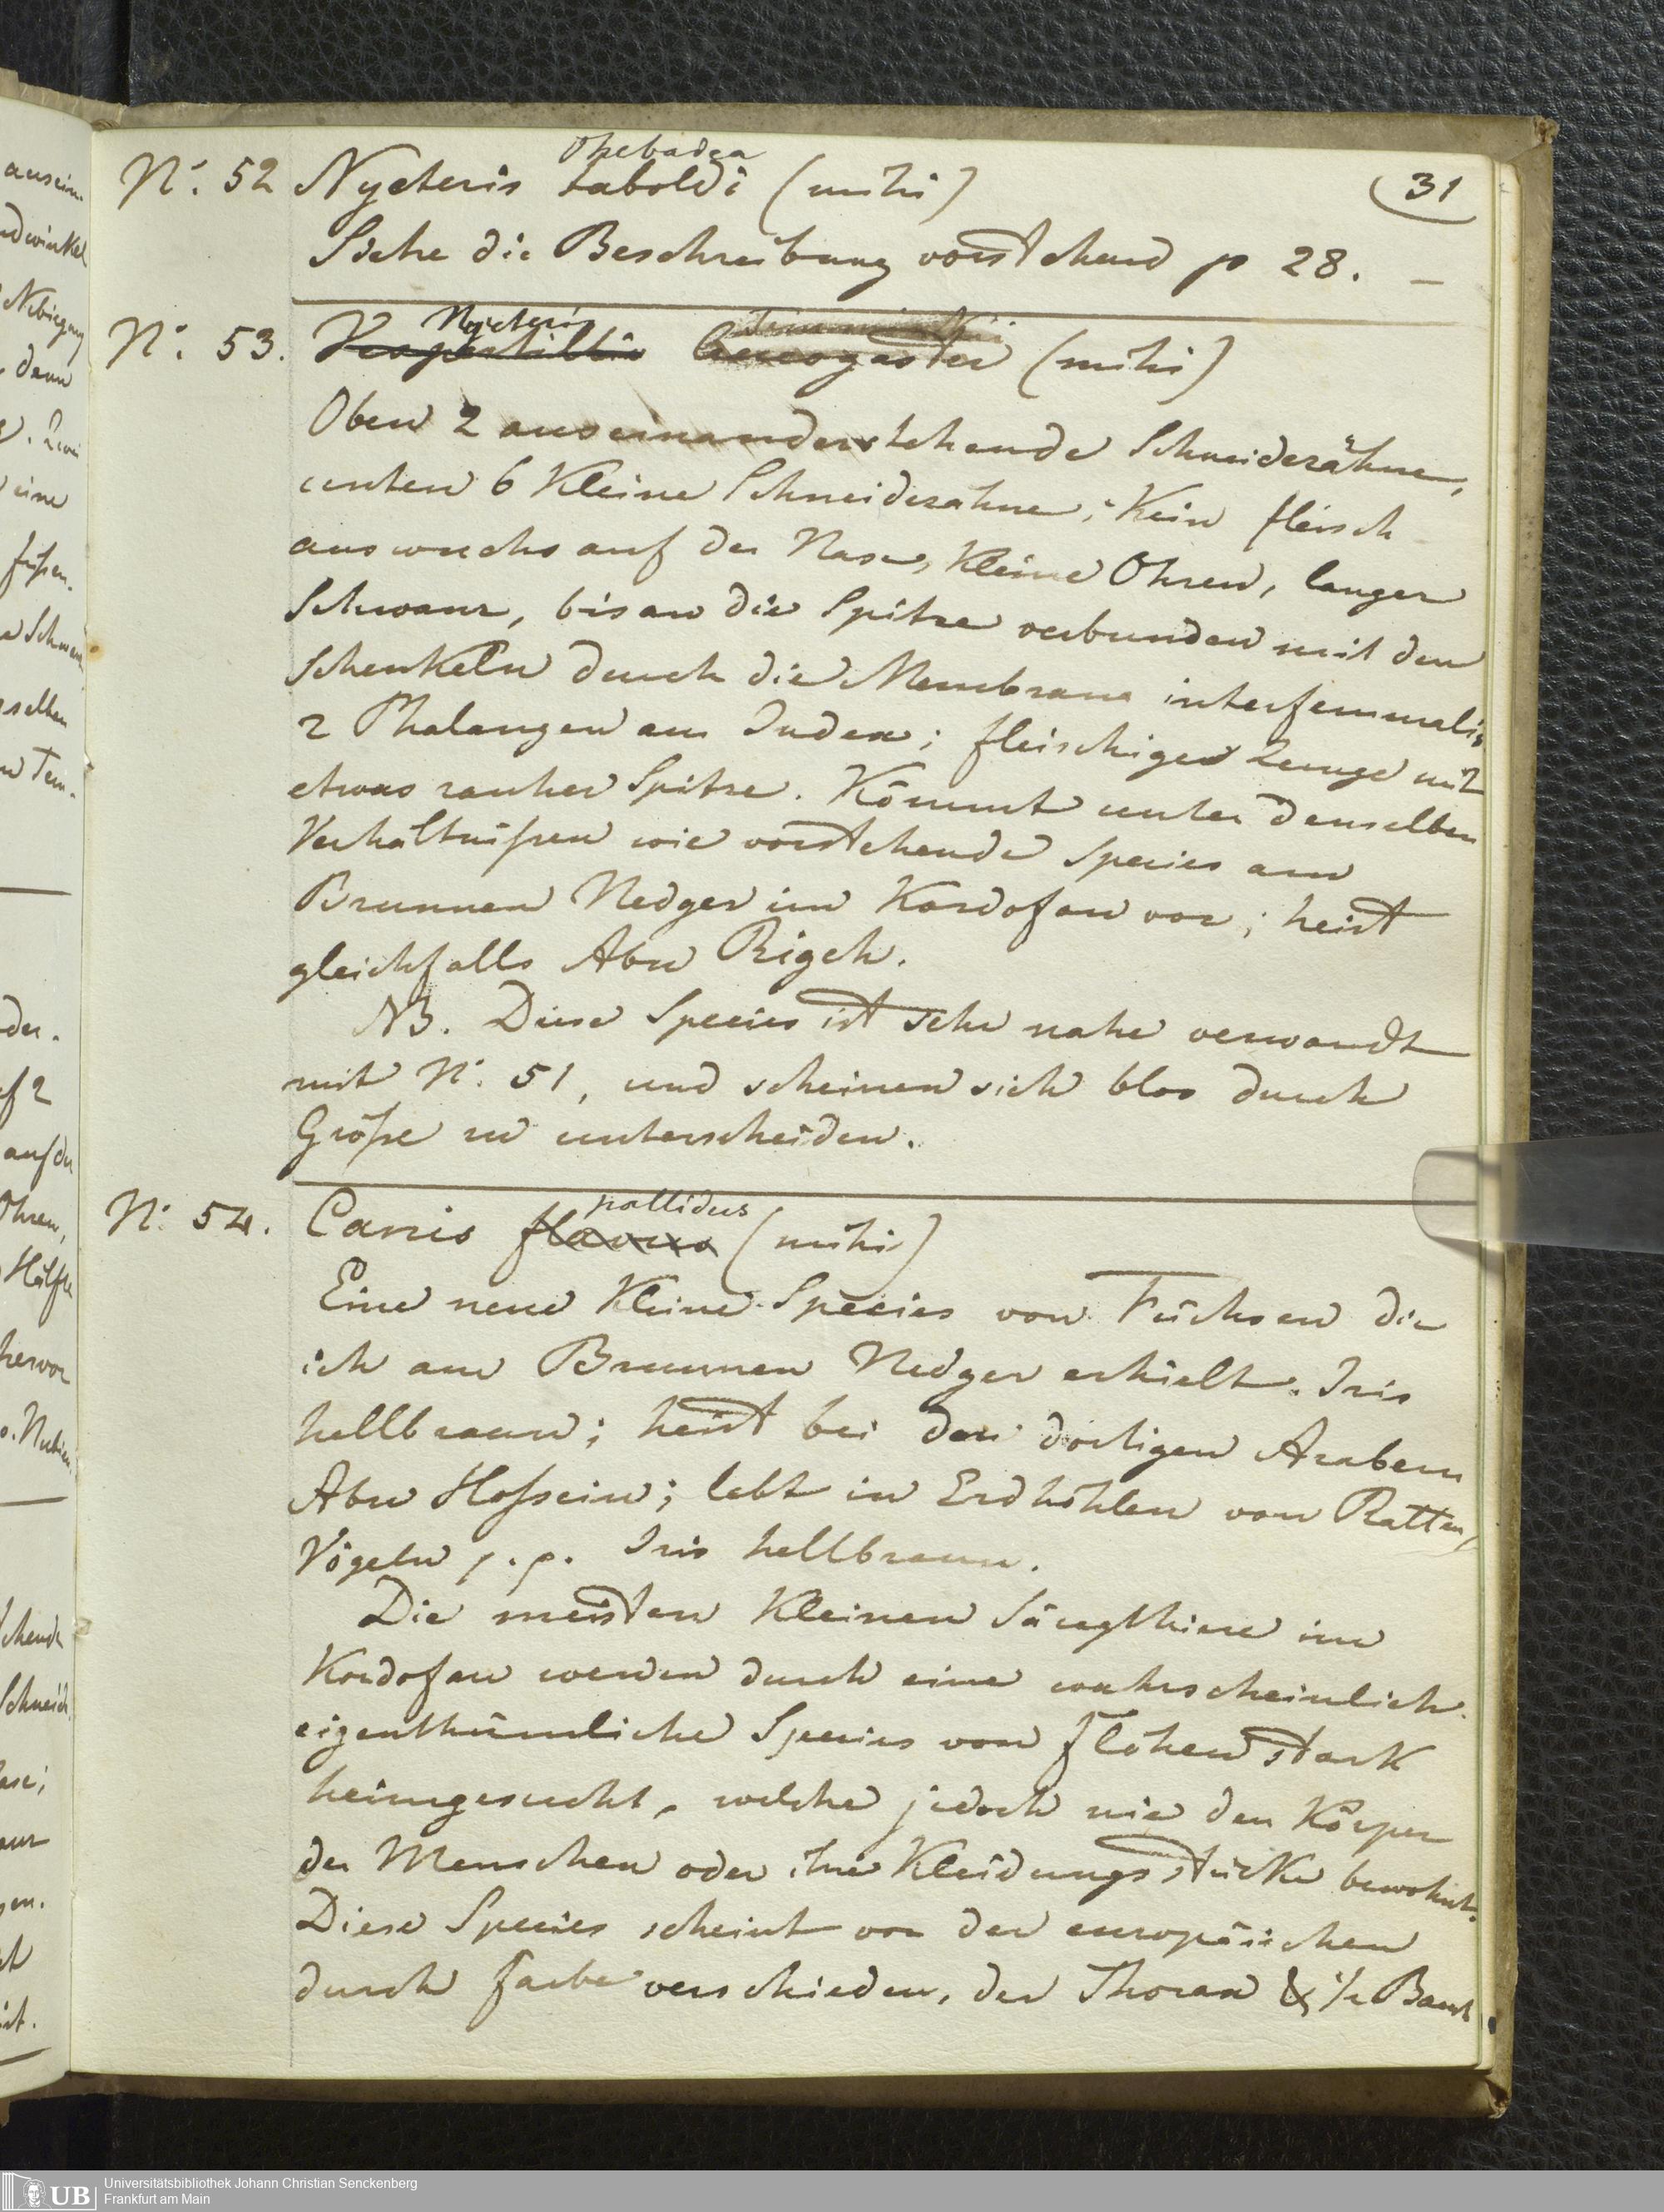 31
Thebadea
N: 52 Nycteris taboldi (mihi)
Siehe die Beschreibung vorstehend p 28. –
Nycteris Temminckii
N: 53. Vespertillio leucogaster (mihi)
Oben 2 auseinanderstehende Schneidezähne,
unten 6 Kleine Schneidezähne; Kein fleisch
auswuchs auf der Nase, Kleine Ohren, langer
Schwanz, bis an die Spitze verbunden mit den
Schenkeln durch die Membrana interfemmuralis
2 Phalangen am Index; fleischiger Zunge mit
etwas rauher Spitze. Kömmt unter denselben
Verhältnißen wie vorstehende Species am
Brunnen Nedger im Kordofan vor; heist
gleichfalls Abu Rigeh.
NB. Diese Species ist sehr nahe verwandt
mit N: 51, und scheinen sich blos durch
Größe zu unterscheiden.
pallidus
N: 54. Canis flavus (mihi)
Eine neue Kleine Species von Füchsen die
ich am Brunnen Nedger erhielt. Iris
hellbraun; heist bei den dortigen Arabern
Abu Hossein; lebt in Erdhöhlen von Ratten,
Vögeln p.p. Iris hellbraun.
Die meisten Kleinen Säugthiere im
Kordofan werden durch eine wahrscheinlich
eigenthümliche Species von flöhen stark
heimgesucht, welche jedoch nie den Körper
der Menschen oder ihre Kleidungsstücke bewohnt.
Diese Species scheint von der europäischen
durch farbe verschieden, der Thorax & 1/2 Bauch
Universitätsbibliothek Johann Christian Senckenberg
Frankfurt am Main
UB